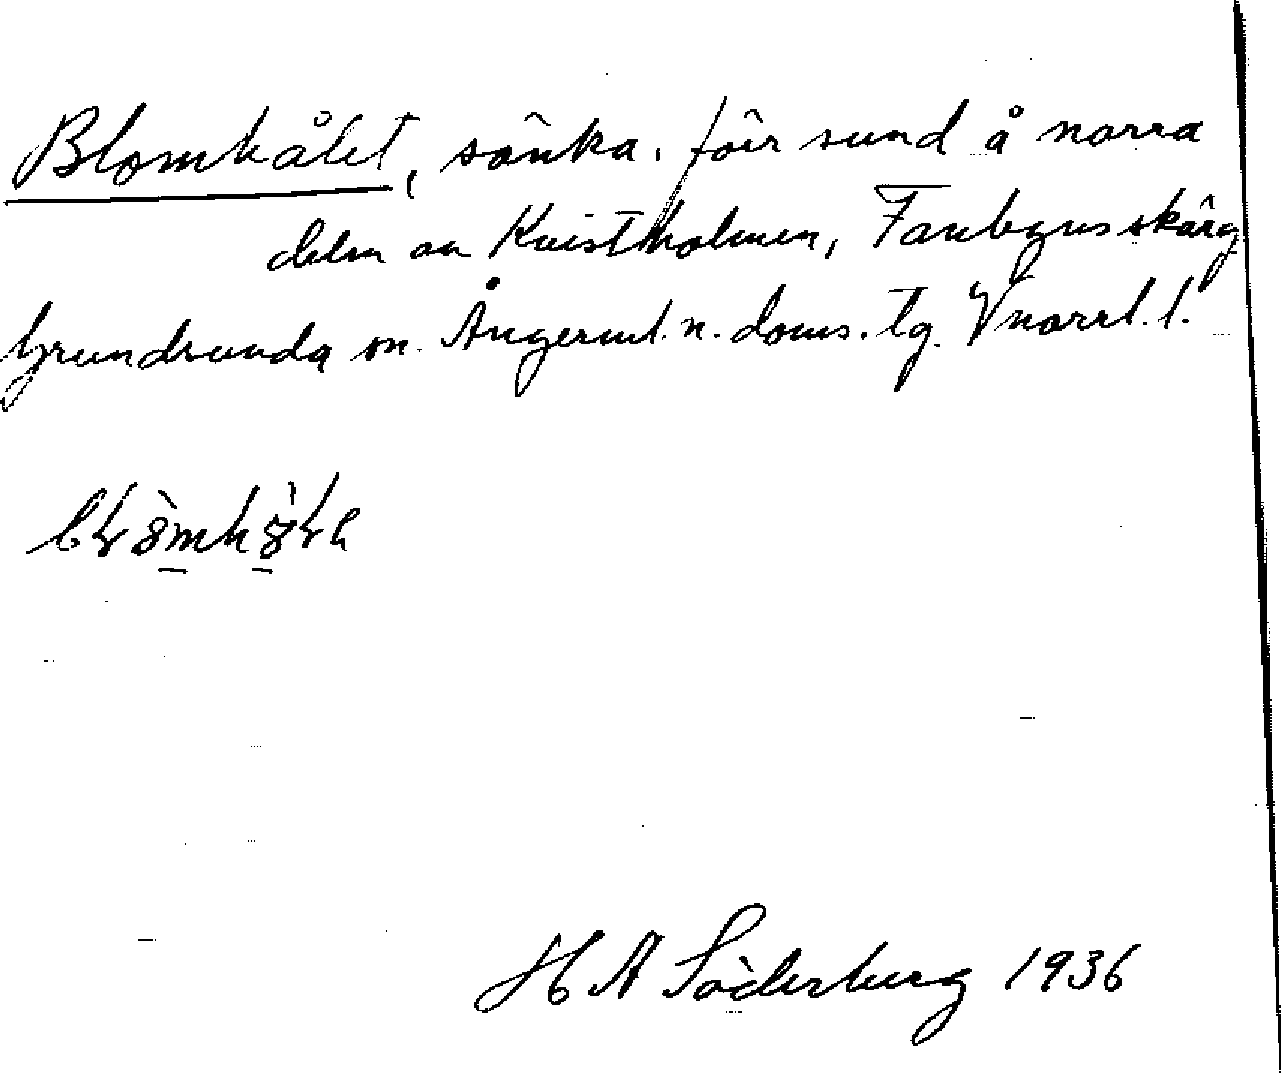 Blomhålet, sänka, för sund å norra
delen av Kvistholmen, Fanbyns skärg
Grundsunda sn. Ångerml. n. doms. tg. Vnorrl. l.
H A Söderberg 1936